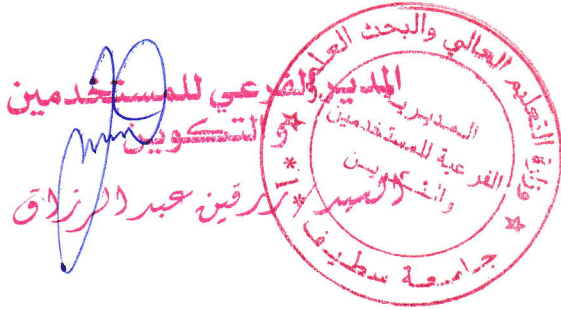 المدير الفرعي للمستخدمين
و التكوين
السيد / زرقين عبد الرزاق
وزارة التعليم العالي والبحث العلمي
جامعة سطيف
المديرية
الفرعية للمستخدمين
والتكوين